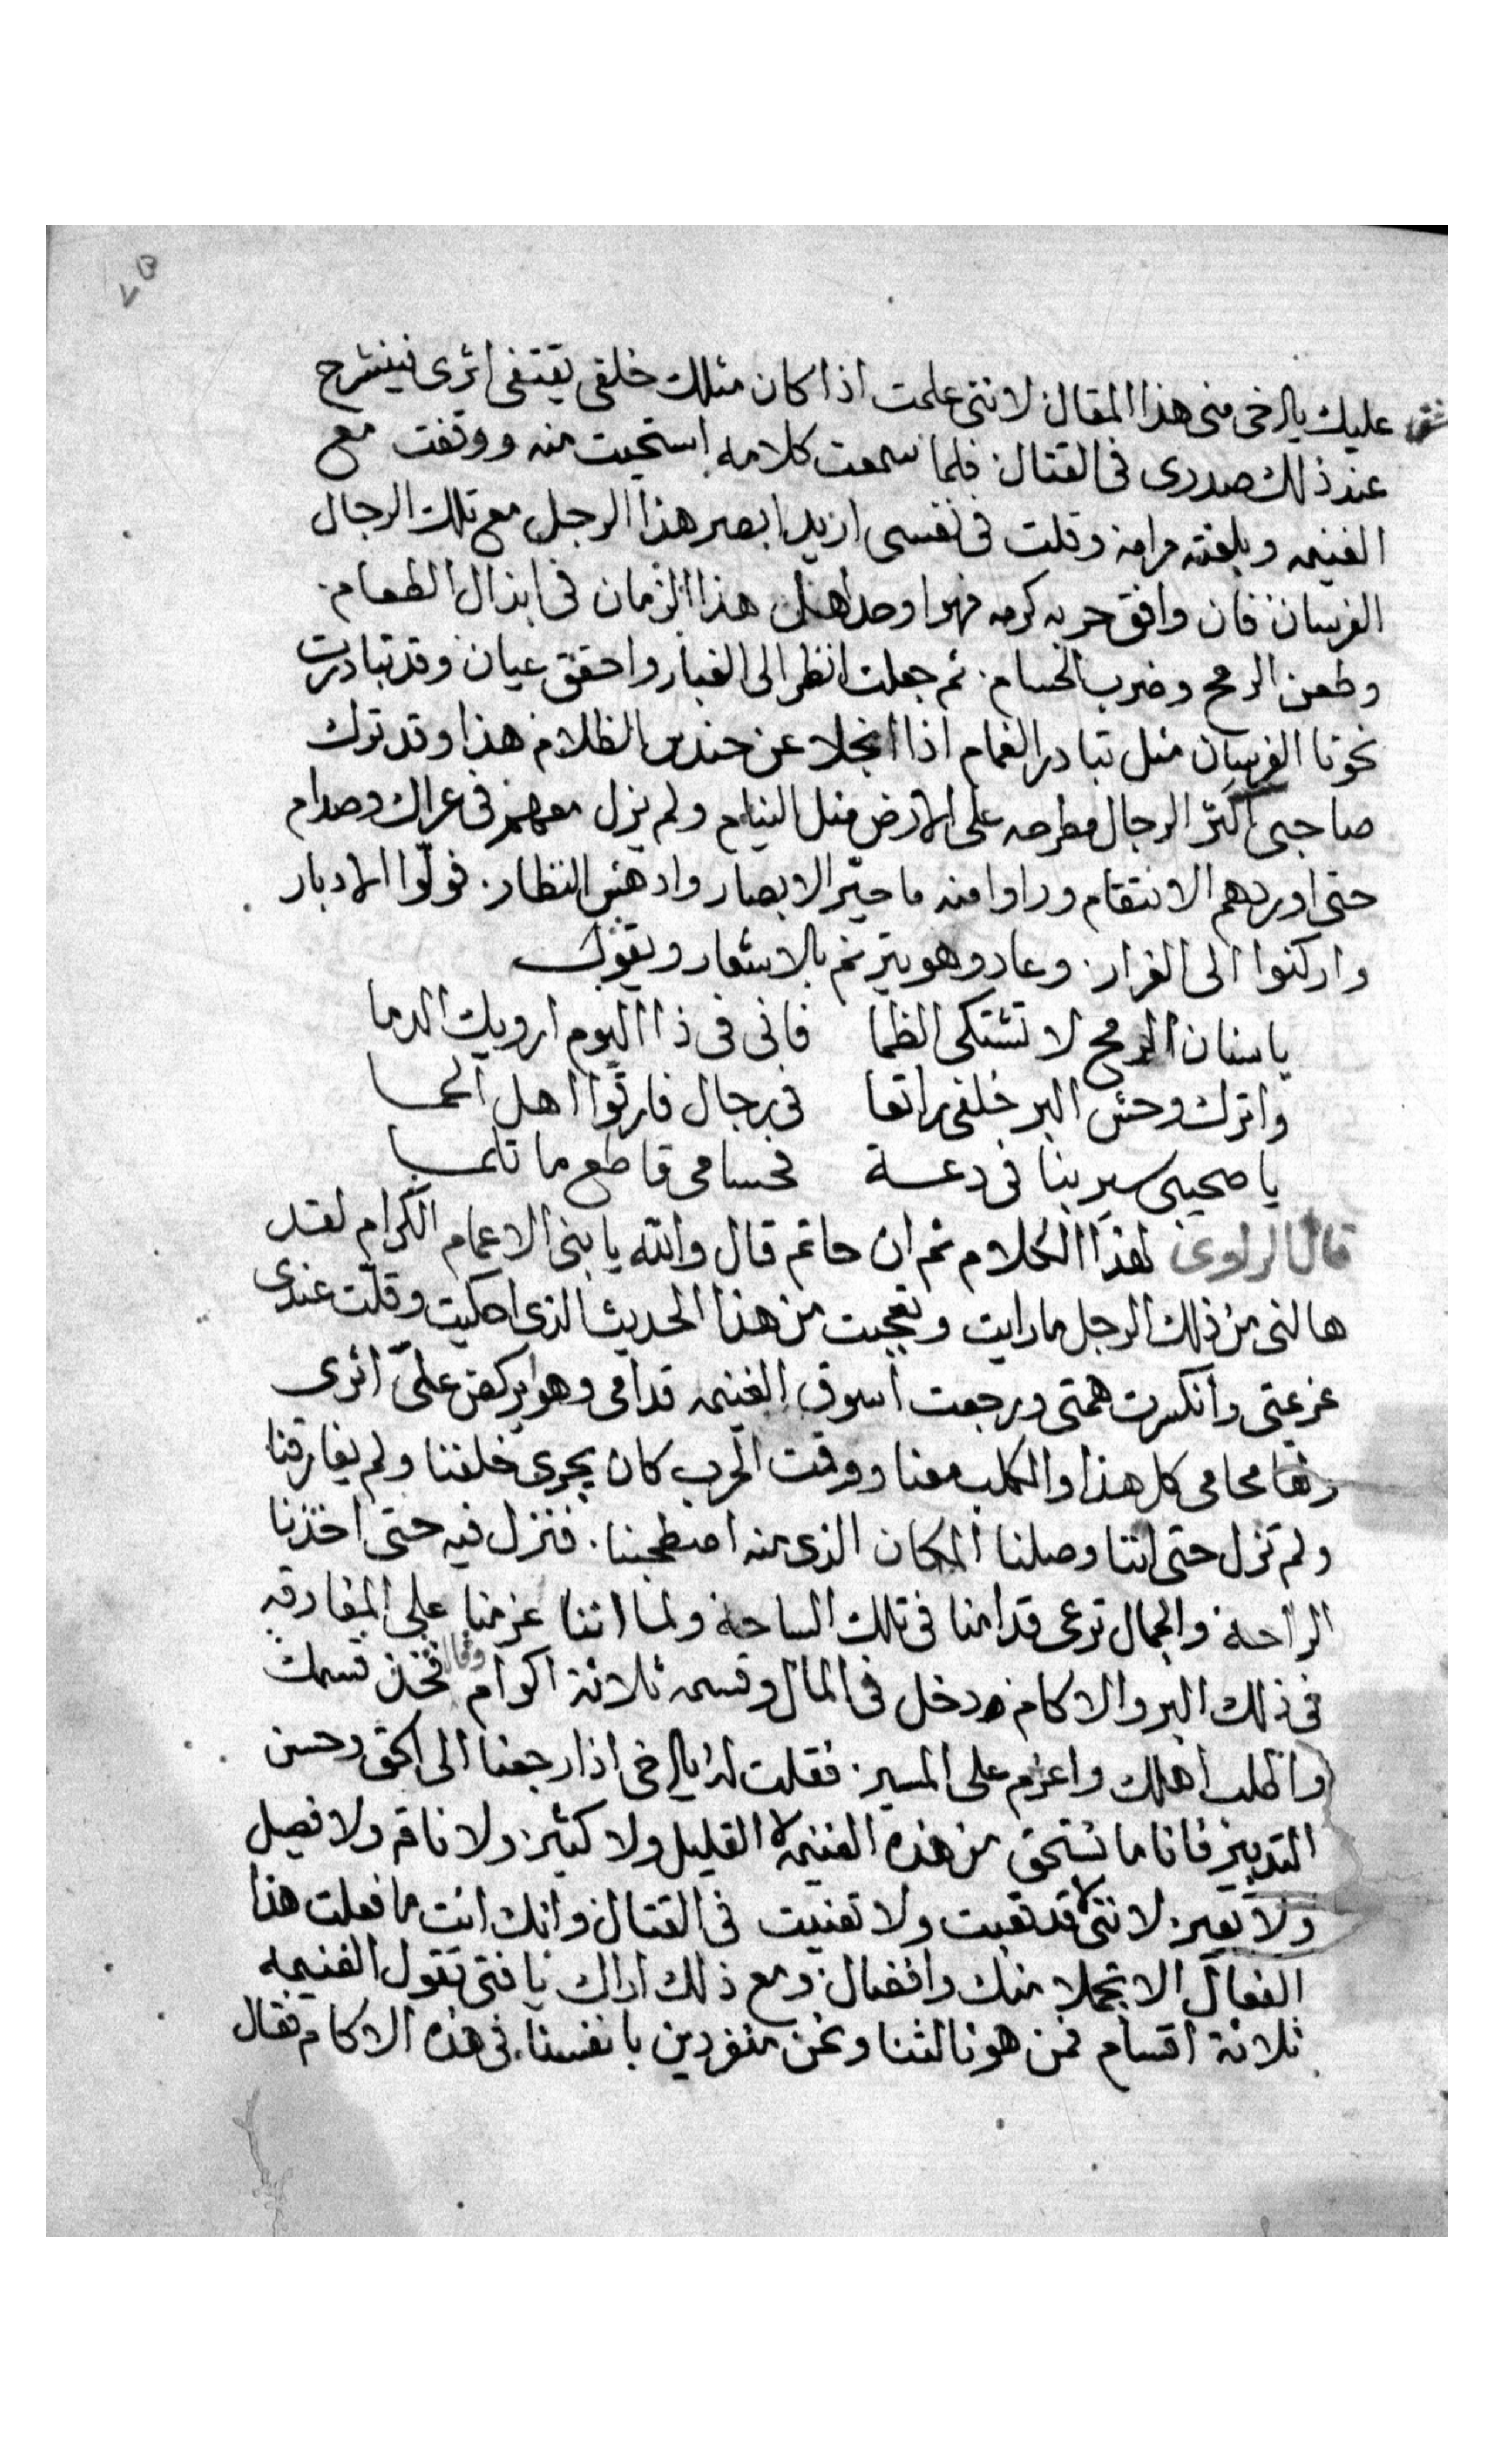 عليك يا اخى منى هذا المقال لاننى علمت اذا كان مثلك خلفى يقتفى اثرى فينشرح
عند ذلك صدرى فى القتال فلما سمعت كلامه استحيت منه ووقفت مع
الغنيمه وبلغته مرامه وقلت فى نفسى اريد ابصر هذا الرجل مع تلك الرجال
الفرسان فان وافق حربه كرمه فهوا وحد اهل هذا الزمان فى ابذال الطعام
وطعن الرمح وضرب الحسام ثم جعلت انظر الى الغبار واحقق عيان وقد تبادرت
نحونا الفرسان مثل تبادر الغمام اذا انجلا عن حندس الظلام هذا وقد ترك
صاحبى اكثر الرجال مطرحه على الارض مثل النيام ولم يزل معهم فى عراك وصدام
حتى اوردهم الانتقام وراوا منه ما حيّر الابصار وادهش النظار فولّوا الادبار
واركنوا الى الفرار وعاد وهو يترنم بالاشعار ويقول
يا سنان الرمح لا تشتكى الظما فانى فى ذا اليوم ارويك الدما
واترك وحش البر خلفى راتعا فى رجال فارقوا اهل الحما
يا صحيبى سير بنا فى دعة فحسامى قاطع ما تلما
قال الراوى لهذا الكلام ثم ان حاتم قال والله يا بنى الاعمام الكرام لقد
هالنى من ذلك الرجل ما رايت وتعجبت من هذا الحديث الذى احكيت وقلت عندى
عزيمتى وانكسرت همتى ورجعت اسوق الغنيمه قدامى وهوا يركض على اثرى
محامى كل هذا والكلب معنا ووقت الحرب كان يجرى خلفنا ولم يفارقنا
ولم نزل حتى اننا وصلنا المكان الذى منه اصطحبنا فنزل فيه حتى اخذنا
الراحة والجمال ترعى قدامنا فى تلك الساحة ولما اننا عزمنا على المفارقه
فى ذلك البر والاكام دخل فى المال وقسمه ثلاثة اكوام وقال فخذ قسمك
واطلب اهلك واعزم على المسير فقلت له يا اخى اذا رجعنا الى الحق وحسن
التدبير فانا ما نستحق من هذه الغنيمه لا القليل ولا كثير ولا ناقه ولا فصيل
ولا بعير لاننى لا قد تعبت ولا تعنيت فى القتال وانك انت ما فعلت هذا
الفعال الا تجملا منك وافضال ومع ذلك اراك يا فتى تقول الغنيمه
ثلاثة اقسام فمن هو ثالثنا ونحن منفردين بانفسنا فى هذه الاكام فقال